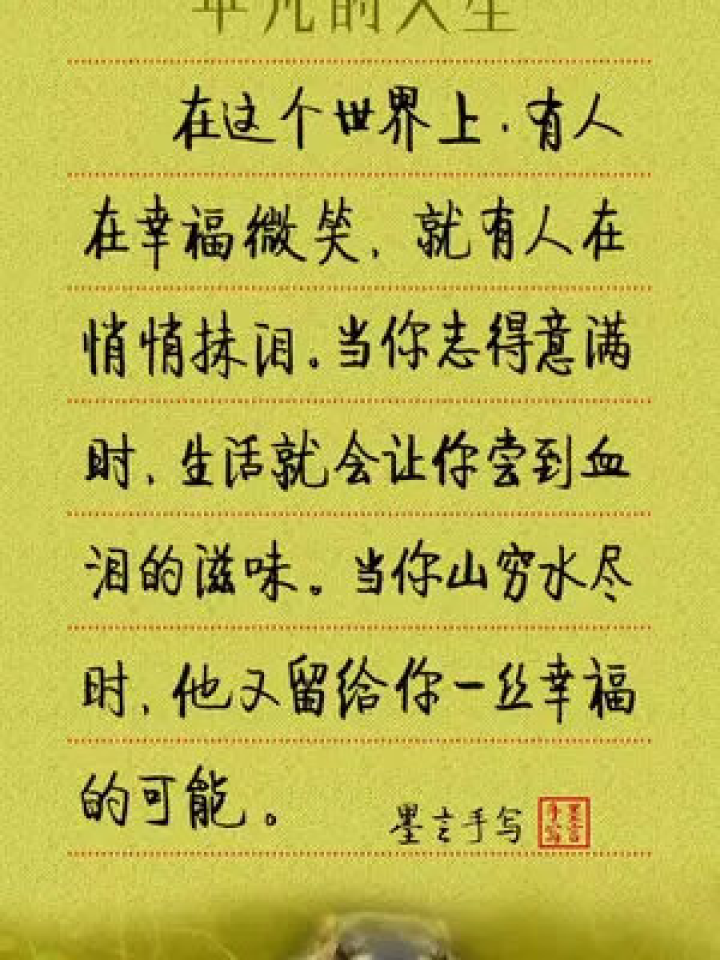 平凡的人生
在这个世界上，有人
在幸福微笑，就有人在
悄悄抹泪。当你志得意满
时，生活就会让你尝到血
泪的滋味。当你山穷水尽
时，他又留给你一丝幸福
的可能。
墨言手写
墨言手写